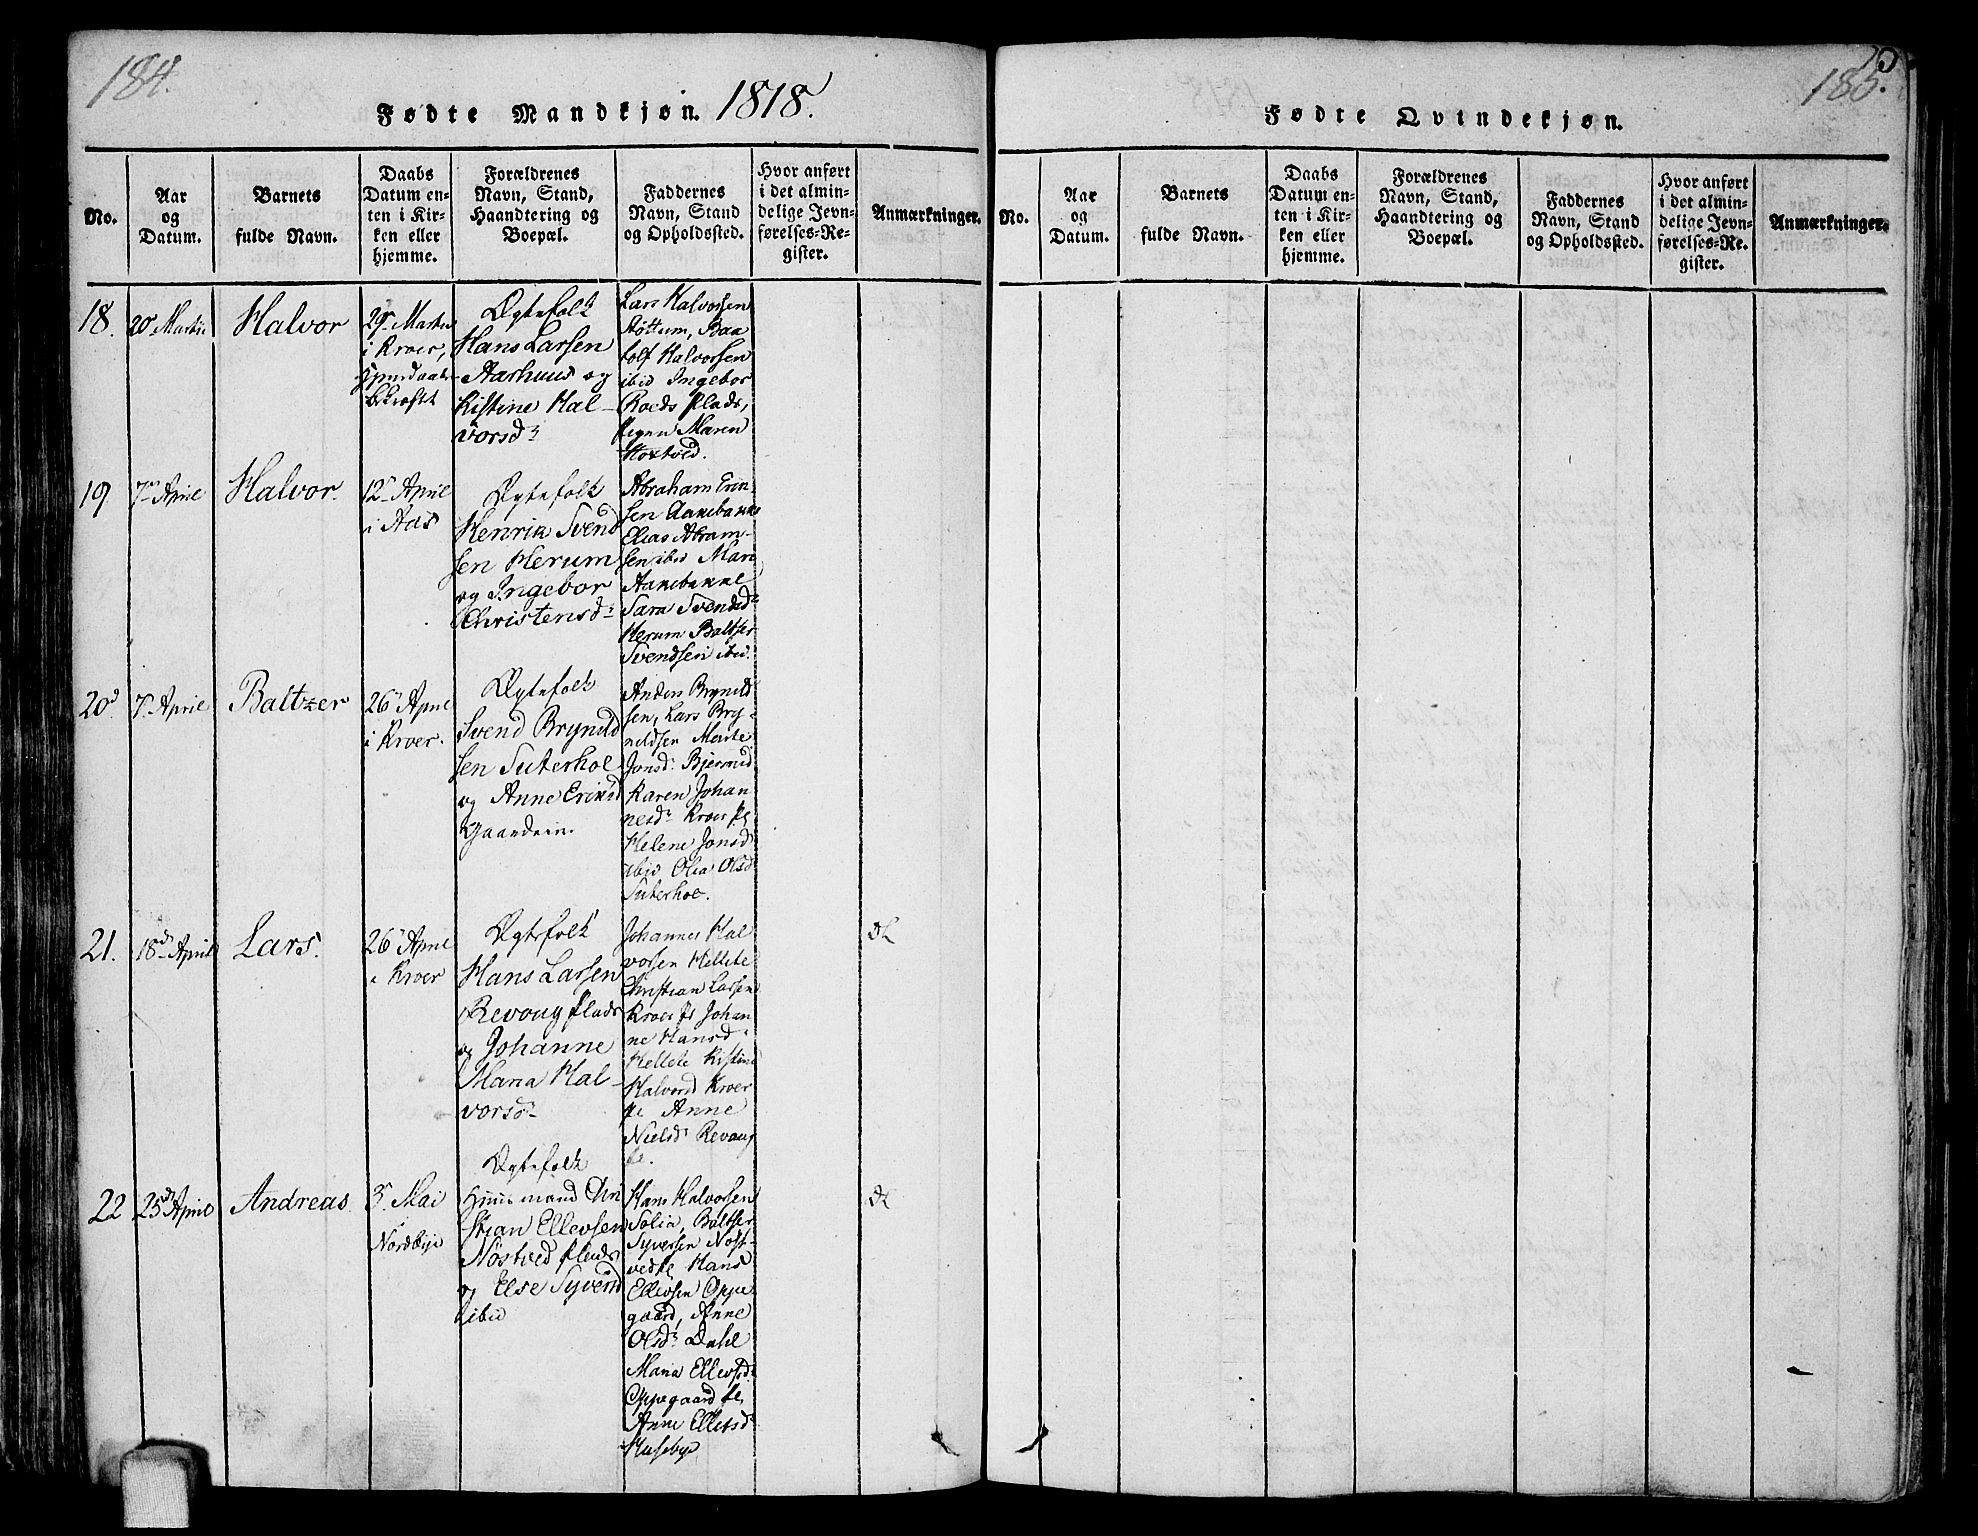 184.
Fødte Mandkjøn. 1818.
No.
Aar
og
Datum.
Barnets
fulde Navn.
Daabs
Datum en-
ten i Kir-
ken eller
hjemme.
Forældrenes
Navn, Stand,
Haandtering og
Boepæl.
Faddernes
Navn, Stand
og Opholdssted.
Hvor anført
i det almin-
delige Jevn-
førelses-Re-
gister.
Anmærkninger.
18.
20 Martii
Halvor
29 Martii
i Kroer,
hjemedaab
bekræftet
Ægtefolk
Hans Larsen
Aarhuus og
Kistine Hal-
vorsd
Lars Halvorsen
Støttum, Baa
tolf Halvorsen
ibid Ingebor
Roeds plads,
pigen Maren
19
7 April
Halvor.
12 April
i Aas
Ægtefolk
Henrik Svend
sen Herum
og Ingebor
Christensd
Abraham Erik-
sen Aakebakke
Elias Abram-
sen ibid Mari
Aakebakke
Sara Svendsd
Herum Baltser
Svendsen ibid.
20
7 April
Baltzer
26 April
i Kroer.
Ægtefolk
Svend Brynild
sen Suterhoe
og Anne Eriksd
Gaardm.
Anders Brynild
sen, Lars Bry-
nildsen Merite
Jonsd Bjerud
Karen Johan
nesd Kroer pl
Helene Jonsd
ibid Olia Olsd
Suterhoe.
21.
18 April
Lars.
26 April
i Kroer
Ægtefolk
Hans Larsen
Revoug plads
og Johanne
Maria Hal-
vorsd
Johannes Hal
vorsen Hellete
Christian Larsen
Kroer pl Johan
ne Hansd
Hellete Kistine
Halvorsd Kroer
pl Anne
Nielsd Revoug
pl.
22
25 April
Andreas.
3 Mai
Nordbye
Ægtefolk
Huusmand Chri
stian Ellevsen
Nøstved plads
og Else Syversd
ibid
Hans Halvorsen
Solia, Baltser
Syversen Nøst-
ved pl, Hans
Ellevsen Oppe
gaard, Anne
Olsd Dahl
Maria Ellevsd
Oppegaard pl,
Anne Ellevsd
Huusebye
185.
Fødte Qvindekjøn.
No.
Aar
og
Datum.
Barnets
fulde Navn.
Daabs
Datum en-
ten i Kir-
ken eller
hjemme.
Forældrenes
Navn, Stand,
Haandtering og
Boepæl.
Faddernes
Navn, Stand
og Opholdssted.
Hvor anført
i det almin-
delige Jevn-
førelses-Re-
gister.
Anmærkninger.